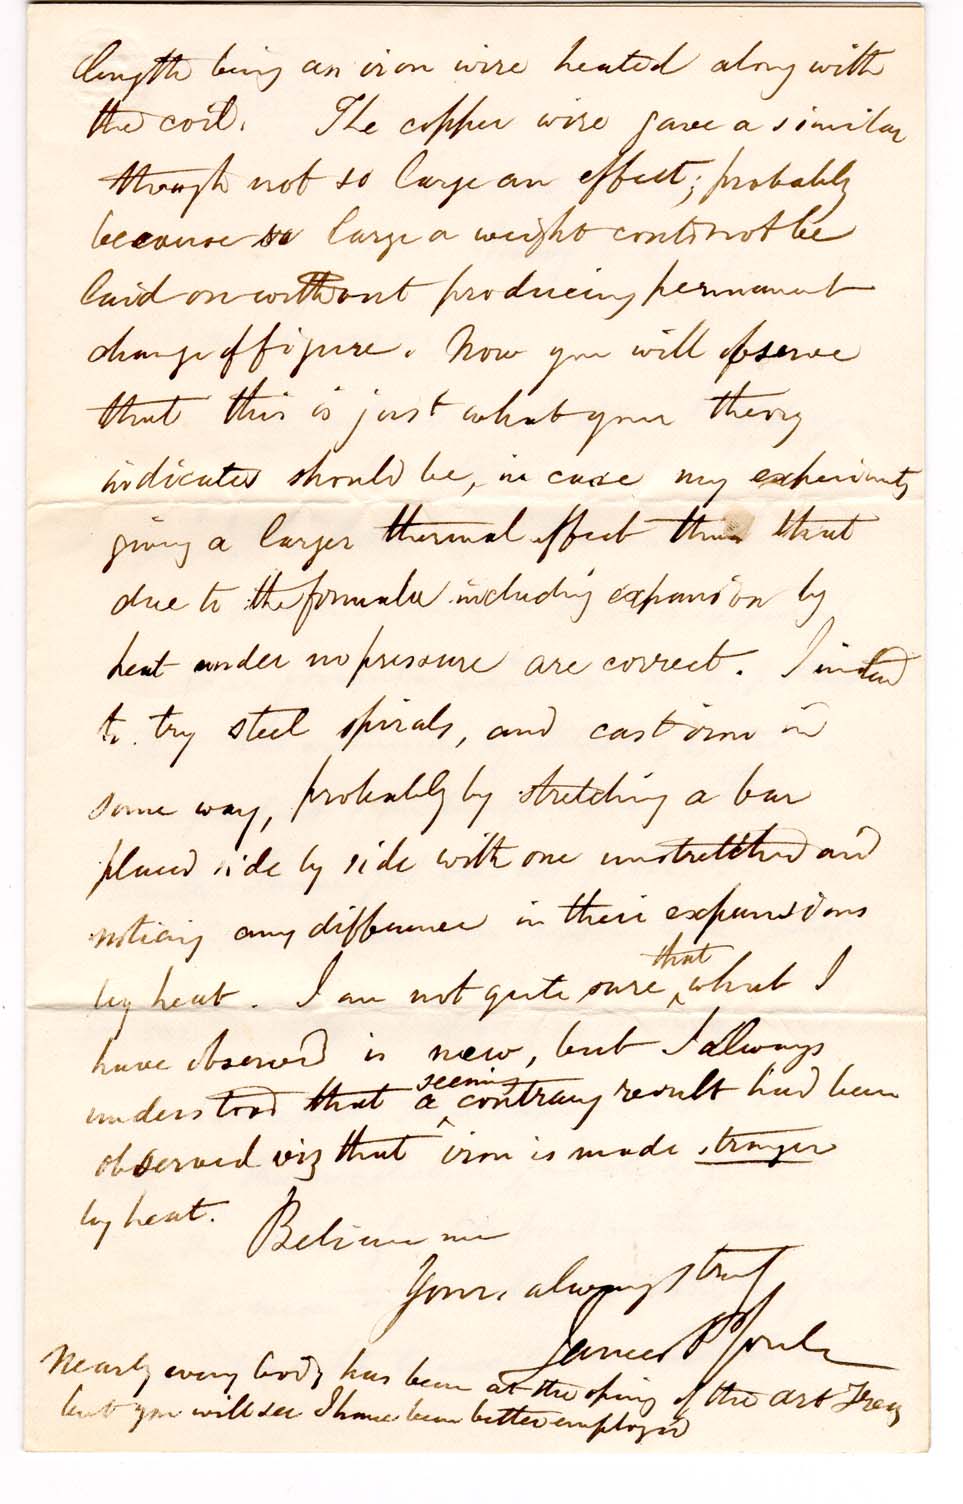 length being an iron wire heated along with
the coil. The copper wire gave a similar
though not so large an effect; probably
because so large a weight could not be
laid on without producing permanent
change of figure. Now you will observe
that this is just what your theory
indicates should be, in case my experiments
giving a larger thermal effect than that
due to the formula including expansion by
heat under no pressure are correct. I intend
to try steel spirals, and cast iron in
some way, probably by stretching a bar
placed side by side with one unstretched and
noticing any difference in their expansions
by heat. I am not quite sure that what I
have observed is new, but I always
understood that a seeming contrary result had been
observed viz that iron is made stronger
by heat.
Believe me
Yours always truly
James P Joule
Nearly every body has been at the oping of the Art Treas
but you will see I have been better employed